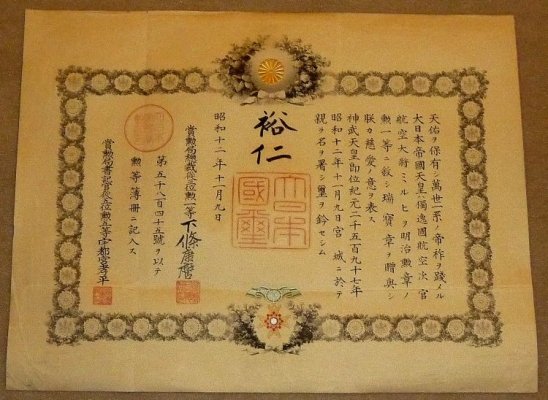 天佑ヲ保有シ萬世一系ノ帝祚ヲ踐メル
大日本帝國天皇獨逸國航空次官
航空大將ミルヒヲ明治勲章ノ
勲一等ニ敍シ瑞寶章ヲ贈與シ
朕カ慈愛ノ意ヲ表ス
神武天皇即位紀元二千五百九十七年
昭和十二年十一月九日宮城ニ於テ
親ラ名ヲ署シ璽ヲ鈐セシム
裕仁
大日本
國璽
昭和十二年十一月九日
賞勲局總裁從三位勲一等下條康麿
第五千八百四十五號ヲ以テ
勲等簿冊ニ記入ス
賞勲局書記官從五位勲五等宇都宮孝平